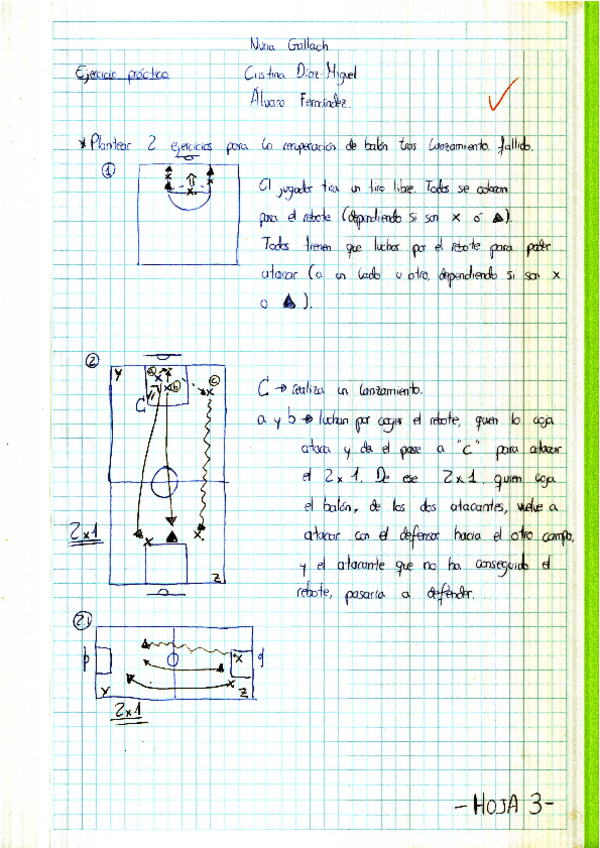 Nuria Gallach
Ejercicio práctico
Cristina Díaz-Miguel
Álvaro Fernández.
* Plantear 2 ejercicios para la recuperación de balón tras lanzamiento fallido.
①
El jugador tira un tiro libre. Todos se colocan
para el rebote (dependiendo si son x ó ▲).
Todos tienen que luchar por el rebote para poder
atacar (a un lado u otro, dependiendo si son x
o ▲).
②
Y
a
b
c
C
C → realiza un lanzamiento.
a y b → luchan por coger el rebote, quien lo coja
ataca y da el pase a "C" para atacar
el 2x1. De ese 2x1 quien coja
el balón, de los dos atacantes, vuelve a
atacar con el defensor hacia el otro campo,
y el atacante que no ha conseguido el
rebote, pasaría a defender.
2x1
Z
2.1
Y
Z
2x1
- HOJA 3 -